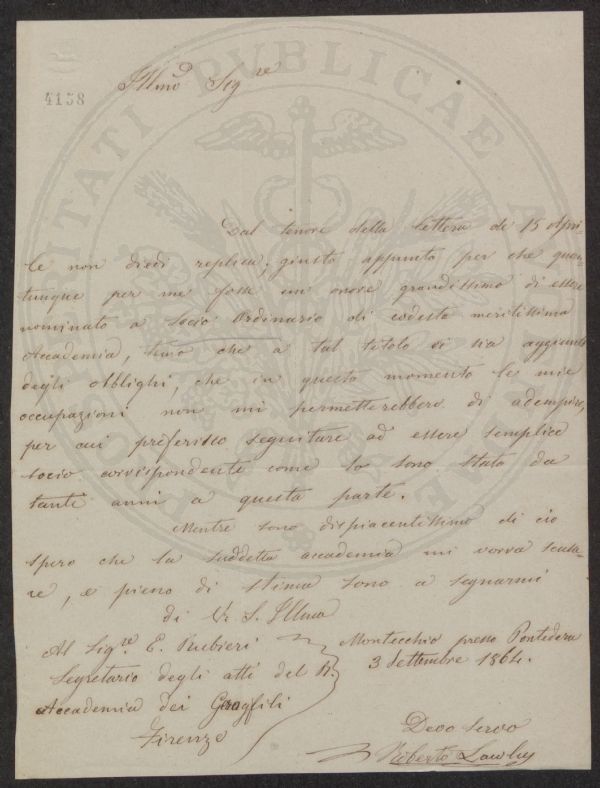 Illmo Sigre
4158
PROSPERITATI PUBLICAE
Dal tenore della lettera de 15 Apri-
le non diedi replica, giusto appunto per che quan-
tunque per me fosse un onore grandissimo di essere
nominato a Socio Ordinario di codesta meritissima
Accademia, temo che a tal titolo vi sia aggiunto
degli obblighi, che in questo momento le mie
occupazioni non mi permetterebbero di adempire,
per cui preferisco seguitare ad essere semplice
socio corrispondente come lo sono stato da
tanti anni a questa parte.
Mentre sono dispiacentissimo di ciò
spero che la suddetta accademia mi vorrà scusa-
re, e pieno di stima sono a segnarmi
di V. S. Illma
Al Sigre E. Rubieri
Segretario degli atti del R.
Accademia dei Georgofili
Firenze
Montecchio presso Pontedera
3 Settembre 1864.
Devo servo
Roberto Lawley